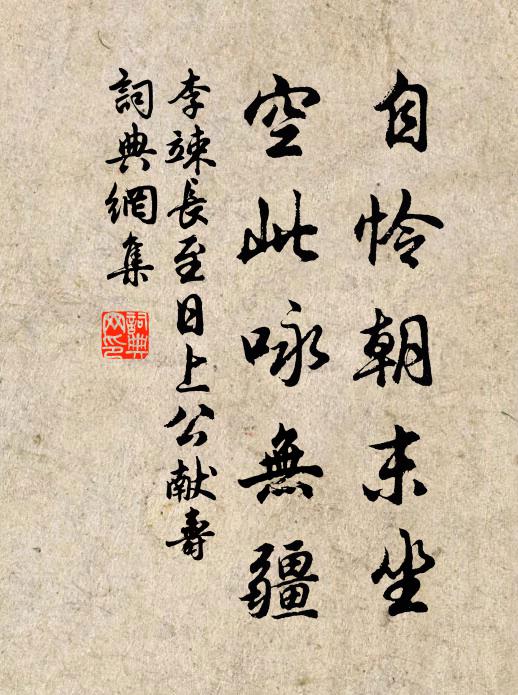 自怜朝末坐
空此咏無疆
李竦長至日上公献壽
詞典網集
詞典网印